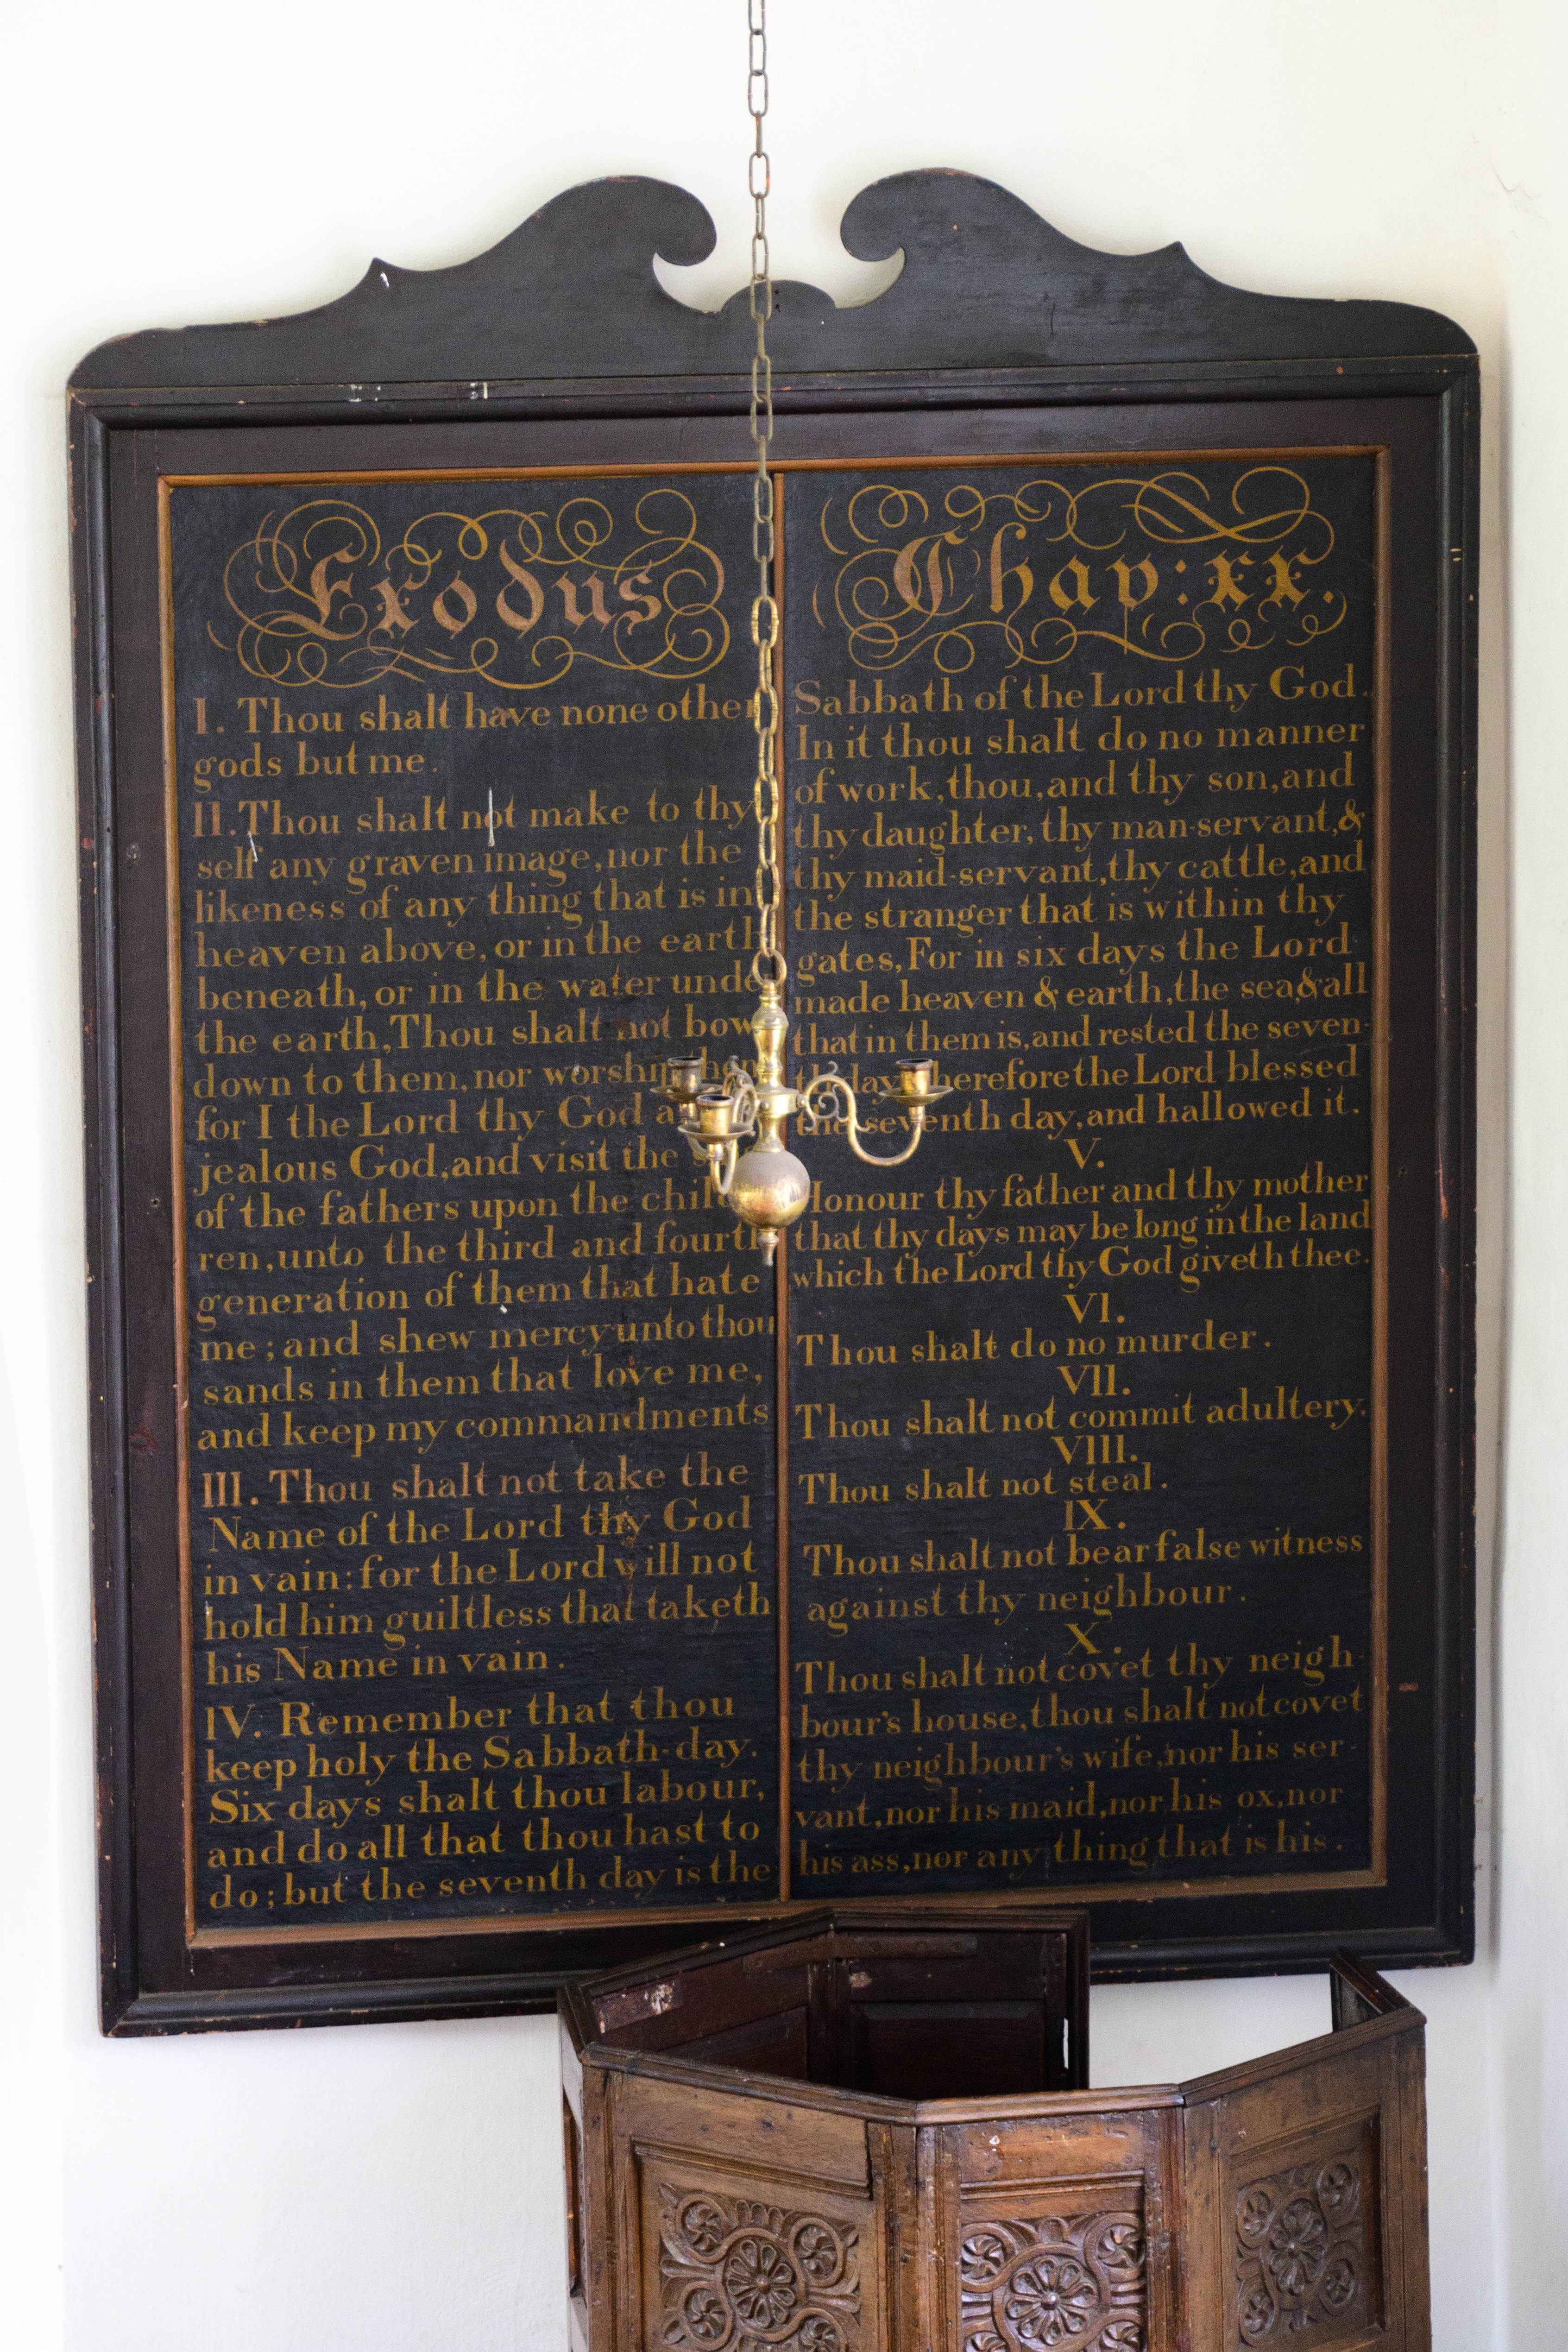 Exodus
I. Thou shalt have none other
gods but me.
II. Thou shalt not make to thy
self any graven image, nor the
likeness of any thing that is in
heaven above, or in the earth
beneath, or in the water unde
the earth, Thou shalt not bow
down to them, nor worship
for I the Lord thy God a
jealous God, and visit the
of the fathers upon the child
ren, unto the third and fourth
generation of them that hate
me; and shew mercy unto thou
sands in them that love me,
and keep my commandments
III. Thou shalt not take the
Name of the Lord thy God
in vain: for the Lord will not
hold him guiltless that taketh
his Name in vain.
IV. Remember that thou
keep holy the Sabbath-day.
Six days shalt thou labour,
and do all that thou hast to
do; but the seventh day is the
Chap: xx.
Sabbath of the Lord thy God.
In it thou shalt do no manner
of work, thou, and thy son, and
thy daughter, thy man-servant, &
thy maid-servant, thy cattle, and
the stranger that is within thy
gates, For in six days the Lord
made heaven & earth, the sea, & all
that in them is, and rested the seven-
th day, wherefore the Lord blessed
the seventh day, and hallowed it.
V.
Honour thy father and thy mother
that thy days may be long in the land
which the Lord thy God giveth thee.
VI.
Thou shalt do no murder.
VII.
Thou shalt not commit adultery.
VIII.
Thou shalt not steal.
IX.
Thou shalt not bear false witness
against thy neighbour.
X.
Thou shalt not covet thy neigh-
bour's house, thou shalt not covet
thy neighbour's wife, nor his ser-
vant, nor his maid, nor his ox, nor
his ass, nor any thing that is his.